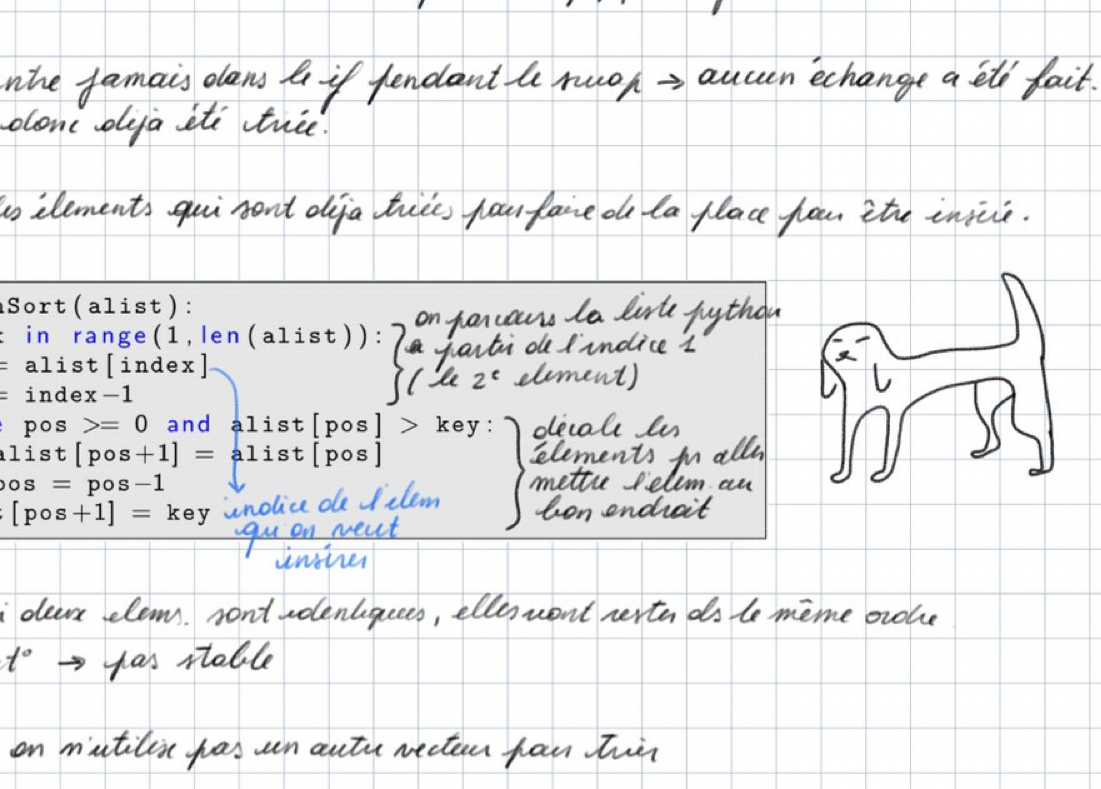 ntre jamais dans le if pendant le swap → aucun échange a été fait.
donc deja été triée.
les élements qui sont déja triées pour faire de la place pour être inséré.
nSort(alist):
x in range(1,len(alist)):
= alist[index]
= index-1
e pos >= 0 and alist[pos] > key:
alist[pos+1] = alist[pos]
pos = pos-1
t[pos+1] = key
on parcours la liste python
a partir de l'indice 1
(le 2e element)
décale les
élements pr aller
mettre l'elem. au
bon endroit
indice de l'elem
qu'on veut
insérer
i deux elems. sont identiques, elles vont rester ds le même ordre
t° → pas stable
on n'utilise pas un autre vecteur pour trier